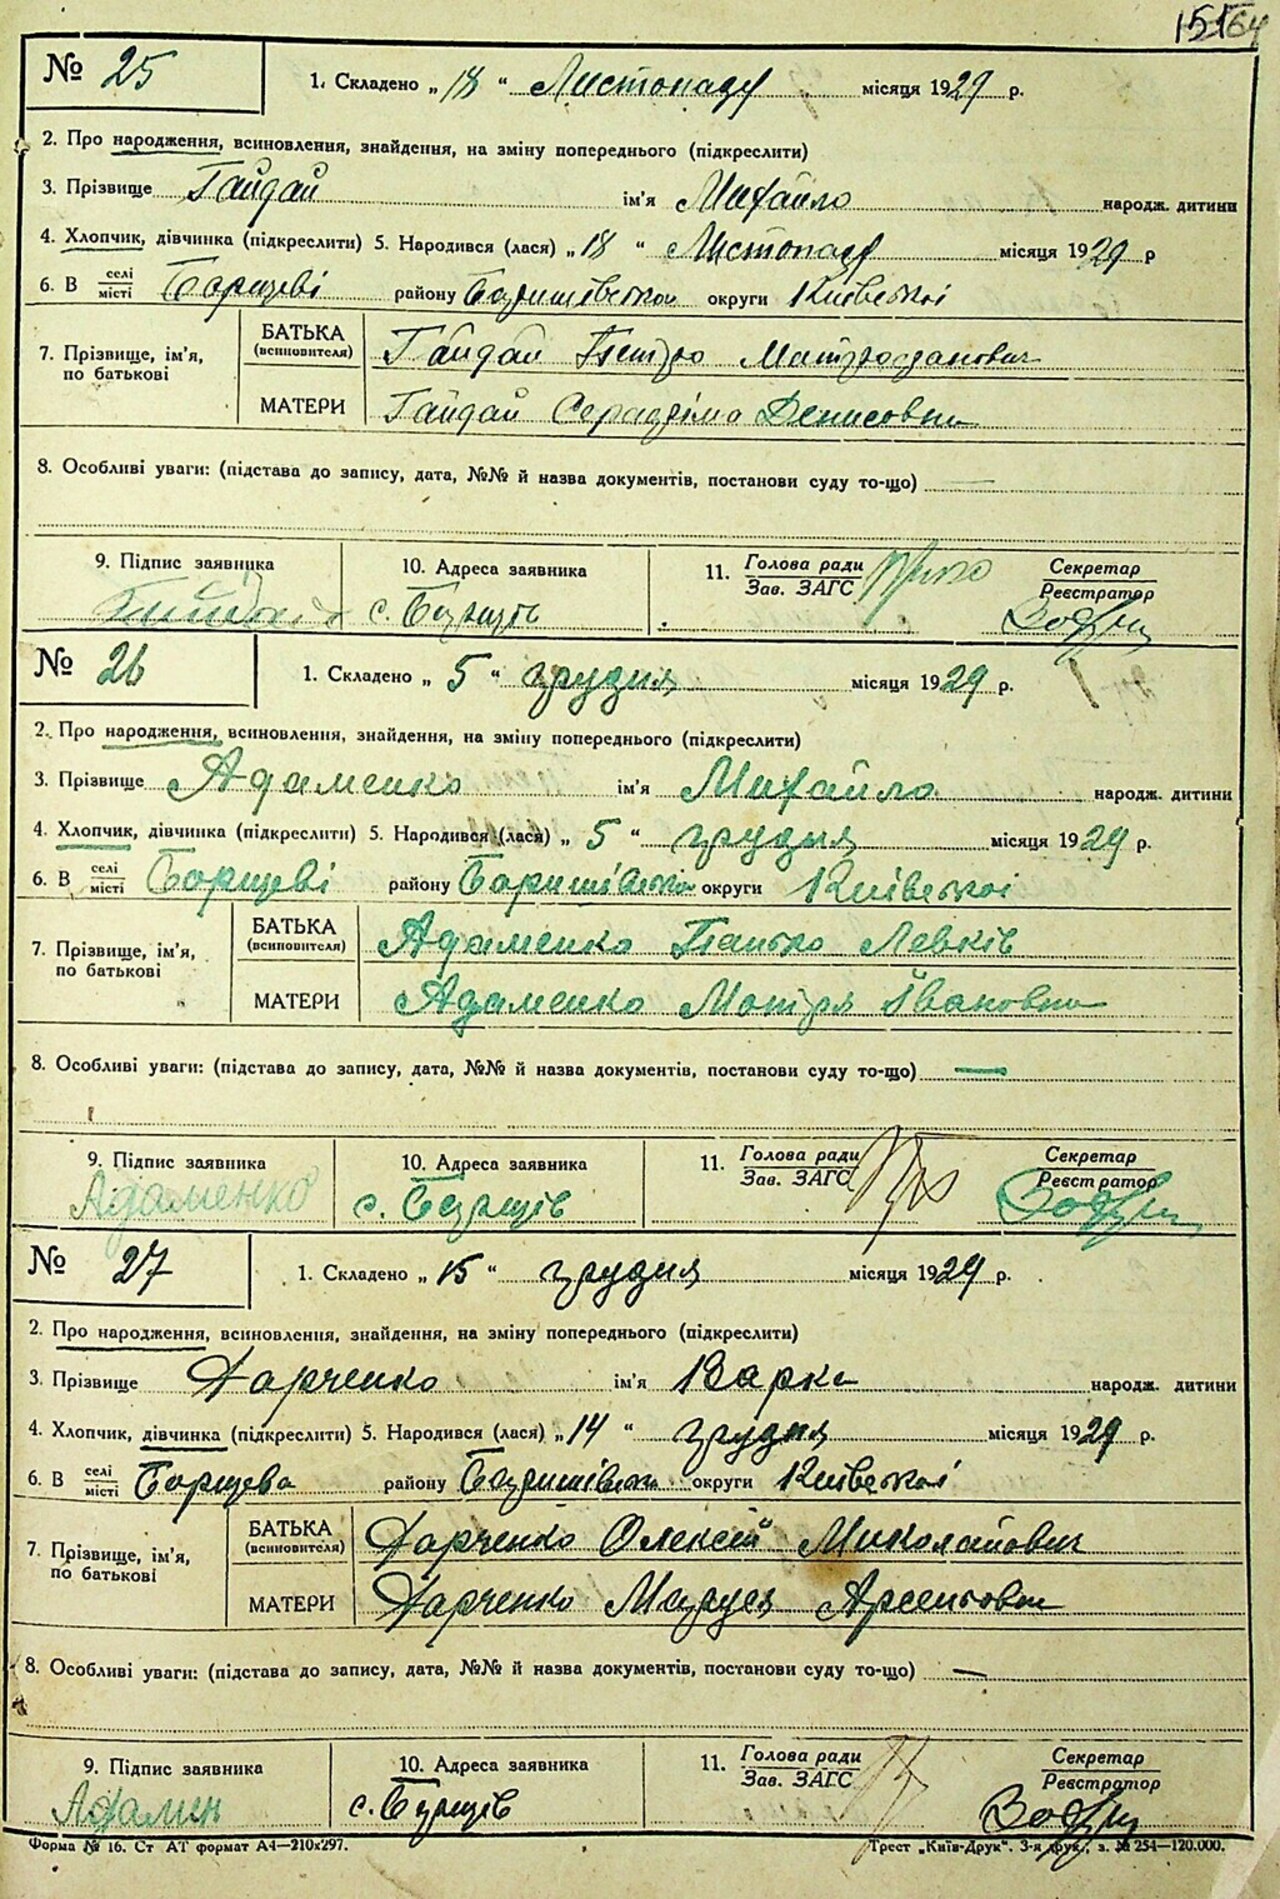 151 64
№ 25 1. Складено „ 18 “ Листопаду місяця 1929 р.
2. Про народження, всиновлення, знайдення, на зміну попереднього (підкреслити)
3. Прізвище Гайдай ім'я Михайло народж. дитини
4. Хлопчик, дівчинка (підкреслити) 5. Народився (лася) „ 18 “ Листопаду місяця 1929 р
6. В селі місті Борщеві району Баришівськ округи Київської
7. Прізвище, ім'я, по батькові
БАТЬКА (всиновителя) Гайдай Петро
МАТЕРИ Гайдай Денисовна
8. Особливі уваги: (підстава до запису, дата, №№ й назва документів, постанови суду то-що) —
9. Підпис заявника 10. Адреса заявника 11. Голова ради Зав. ЗАГС Секретар Реєстратор
Гайдай с. Борщів
№ 26 1. Складено „ 5 “ грудня місяця 1929 р.
2. Про народження, всиновлення, знайдення, на зміну попереднього (підкреслити)
3. Прізвище Адаменко ім'я Михайло народж. дитини
4. Хлопчик, дівчинка (підкреслити) 5. Народився (лася) „ 5 “ грудня місяця 1929 р.
6. В селі місті Борщеві району Баришівськ округи Київської
7. Прізвище, ім'я, по батькові
БАТЬКА (всиновителя) Адаменко Панько Левків
МАТЕРИ Адаменко Мотря Івановна
8. Особливі уваги: (підстава до запису, дата, №№ й назва документів, постанови суду то-що) —
9. Підпис заявника 10. Адреса заявника 11. Голова ради Зав. ЗАГС Секретар Реєстратор
Адаменко с. Борщів
№ 27 1. Складено „ 15 “ грудня місяця 1929 р.
2. Про народження, всиновлення, знайдення, на зміну попереднього (підкреслити)
3. Прізвище Харченко ім'я Варка народж. дитини
4. Хлопчик, дівчинка (підкреслити) 5. Народився (лася) „ 14 “ грудня місяця 1929 р.
6. В селі місті Борщева району Баришівськ округи Київської
7. Прізвище, ім'я, по батькові
БАТЬКА (всиновителя) Харченко Олексій Миколайович
МАТЕРИ Харченко Маруся Арсентовна
8. Особливі уваги: (підстава до запису, дата, №№ й назва документів, постанови суду то-що) —
9. Підпис заявника 10. Адреса заявника 11. Голова ради Зав. ЗАГС Секретар Реєстратор
Адамен с. Борщів
Форма № 16. Ст АТ формат А4—210х297. Трест „Київ-Друк“. 3-я друк., з. № 254—120.000.